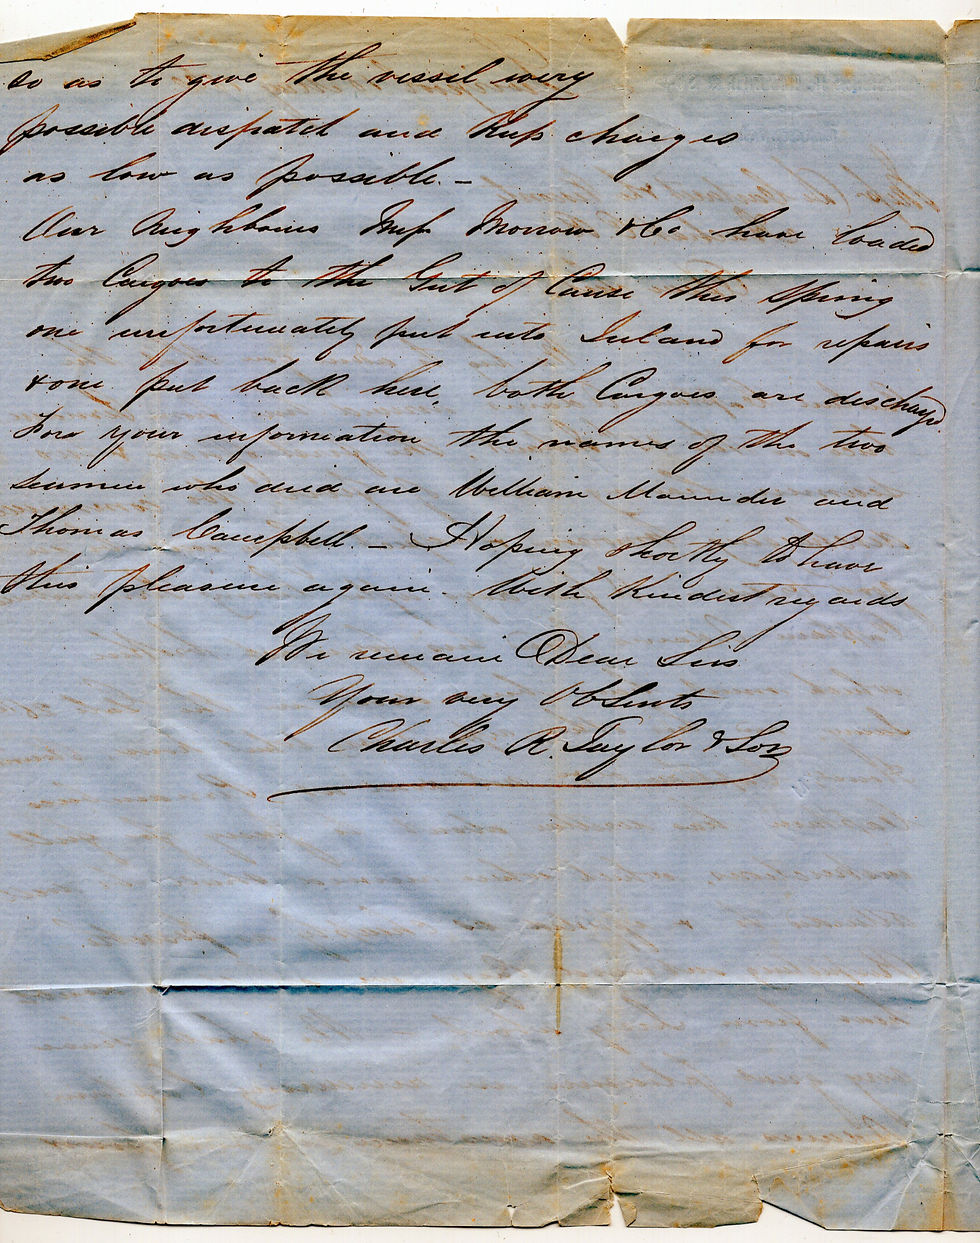 so as to give the vessel every
possible dispatch and keep charges
as low as possible. —
Our Neighbours Messrs Morrow & Co have loaded
two Cargoes to the Gut of Canso this Spring
one unfortunately put into Ireland for repairs
& one put back here, both Cargoes are discharged
For your information the names of the two
seamen who died are William Maunder and
Thomas Campbell. — Hoping shortly to have
this pleasure again. With kindest regards
We remain Dear Sirs
Your very Obt Servts
Charles R. Taylor & Son